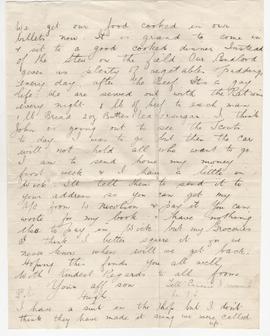 We get our food cooked in our
billets now It is grand to come in
& sit to a good cooked dinner Instead
of the Stew on the field Our Landlord
gives us plenty of vegetables & pudding
every day after the Beef Its a gay
life We are served out with the Rations
every night 1 lb of Beef to each man
1 lb Bread 2oz Butter Tea & sugar. I think
John is going out to see the Scouts
to day. I was to go but then the car
will not hold all who want to go
I am to send home my money
first week & I have a little in
Wick Ill tell them to send it to
your address so you can get my
up from D Nicolson & pay it You can
wrote for my book I have nothing
else to pay in Wick but my Groceries
I think I better square it on we
never know when we will get back.
Hoping this finds you all well
With Kindest Regards to all from
Your aff son
Hugh
P.S.
I have a suit in the Shop but I dont
think they have made it since we were called
up.